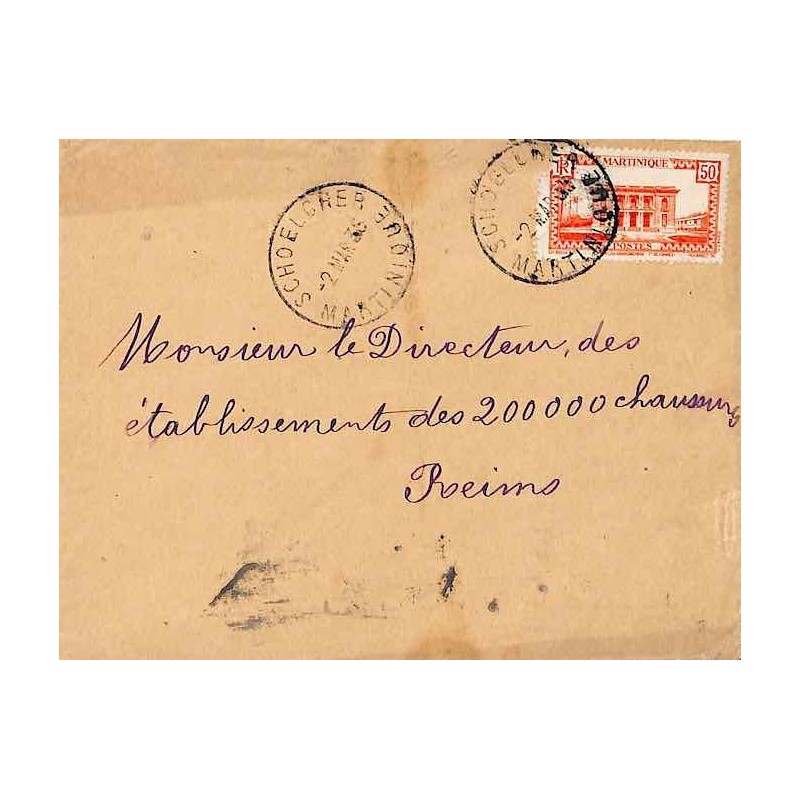 SCHOELCHER MARTINIQUE
-2 MAR 36
SCHOELCHER MARTINIQUE
-2 MAR 36
RF MARTINIQUE 50
POSTES
Monsieur le Directeur, des
établissements des 200000 chaussures
Reims